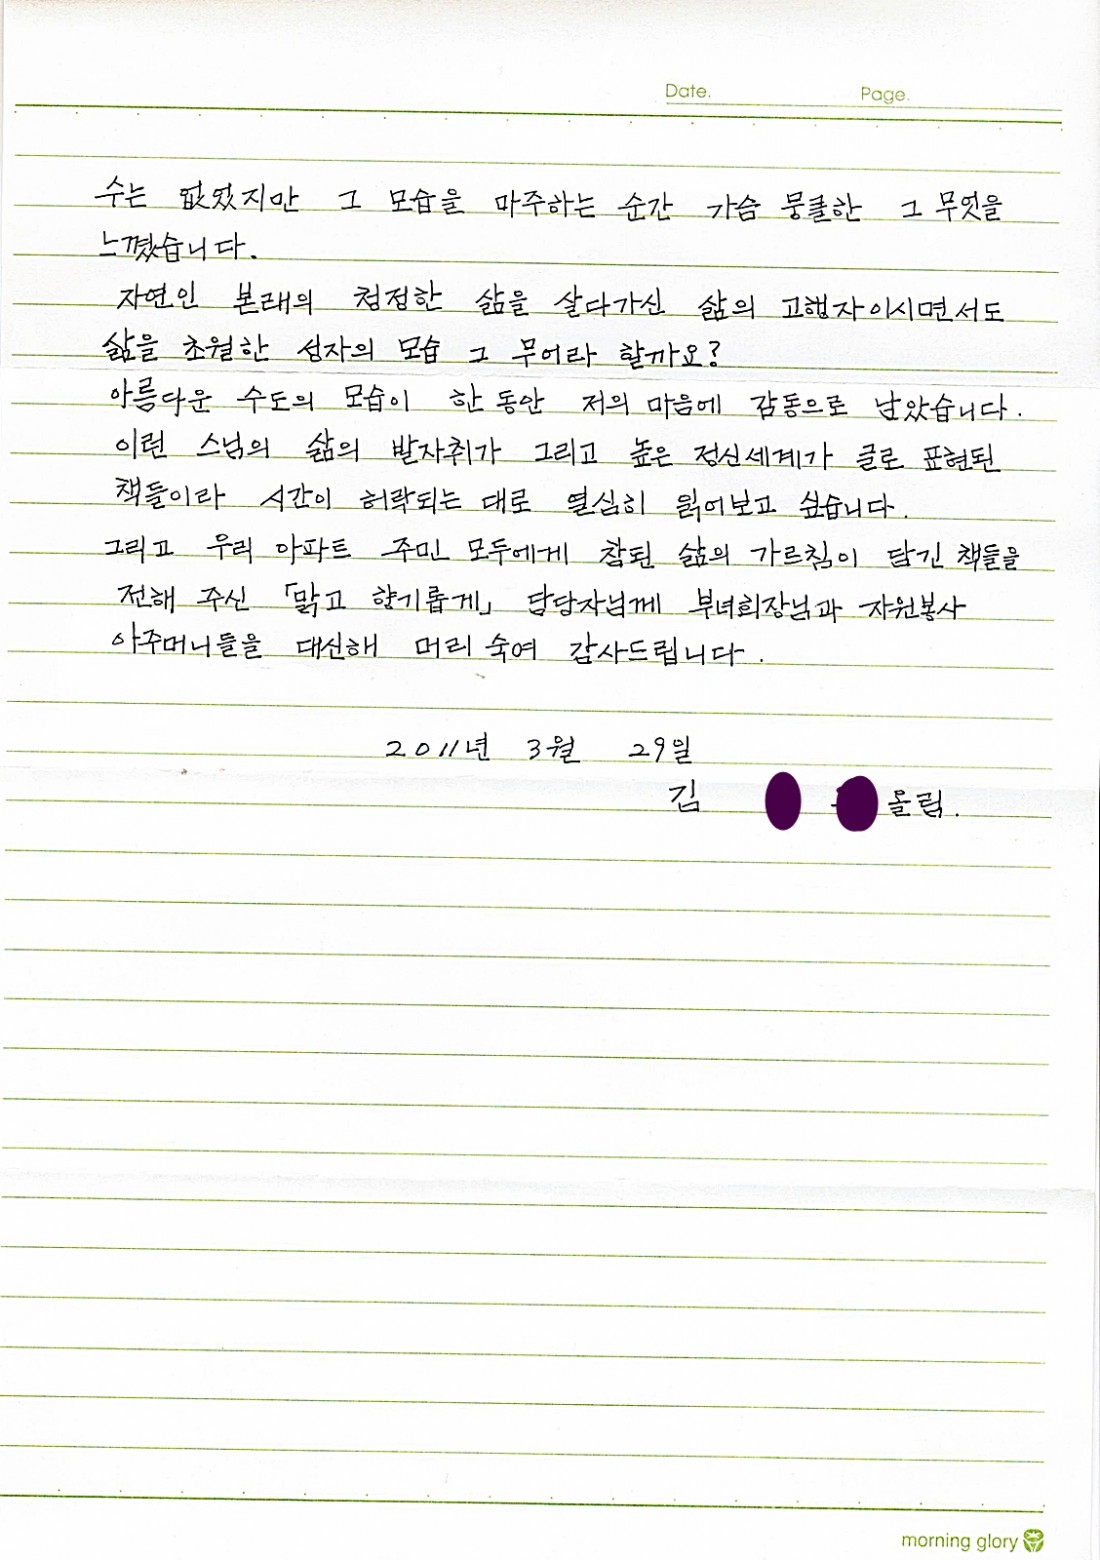 Date. Page.
수는 없었지만 그 모습을 마주하는 순간 가슴 뭉클한 그 무엇을
느꼈습니다.
자연인 본래의 청정한 삶을 살다가신 삶의 고행자이시면서도
삶을 초월한 성자의 모습 그 무어라 할까요?
아름다운 수도의 모습이 한동안 저의 마음에 감동으로 남았습니다.
이런 스님의 삶의 발자취가 그리고 높은 정신세계가 글로 표현된
책들이라 시간이 허락되는 대로 열심히 읽어보고 싶습니다.
그리고 우리 아파트 주민 모두에게 참된 삶의 가르침이 담긴 책들을
전해 주신 「맑고 향기롭게」 담당자님께 부녀회장님과 자원봉사
아주머니들을 대신해 머리 숙여 감사드립니다.
2011년 3월 29일
김 올림.
morning glory